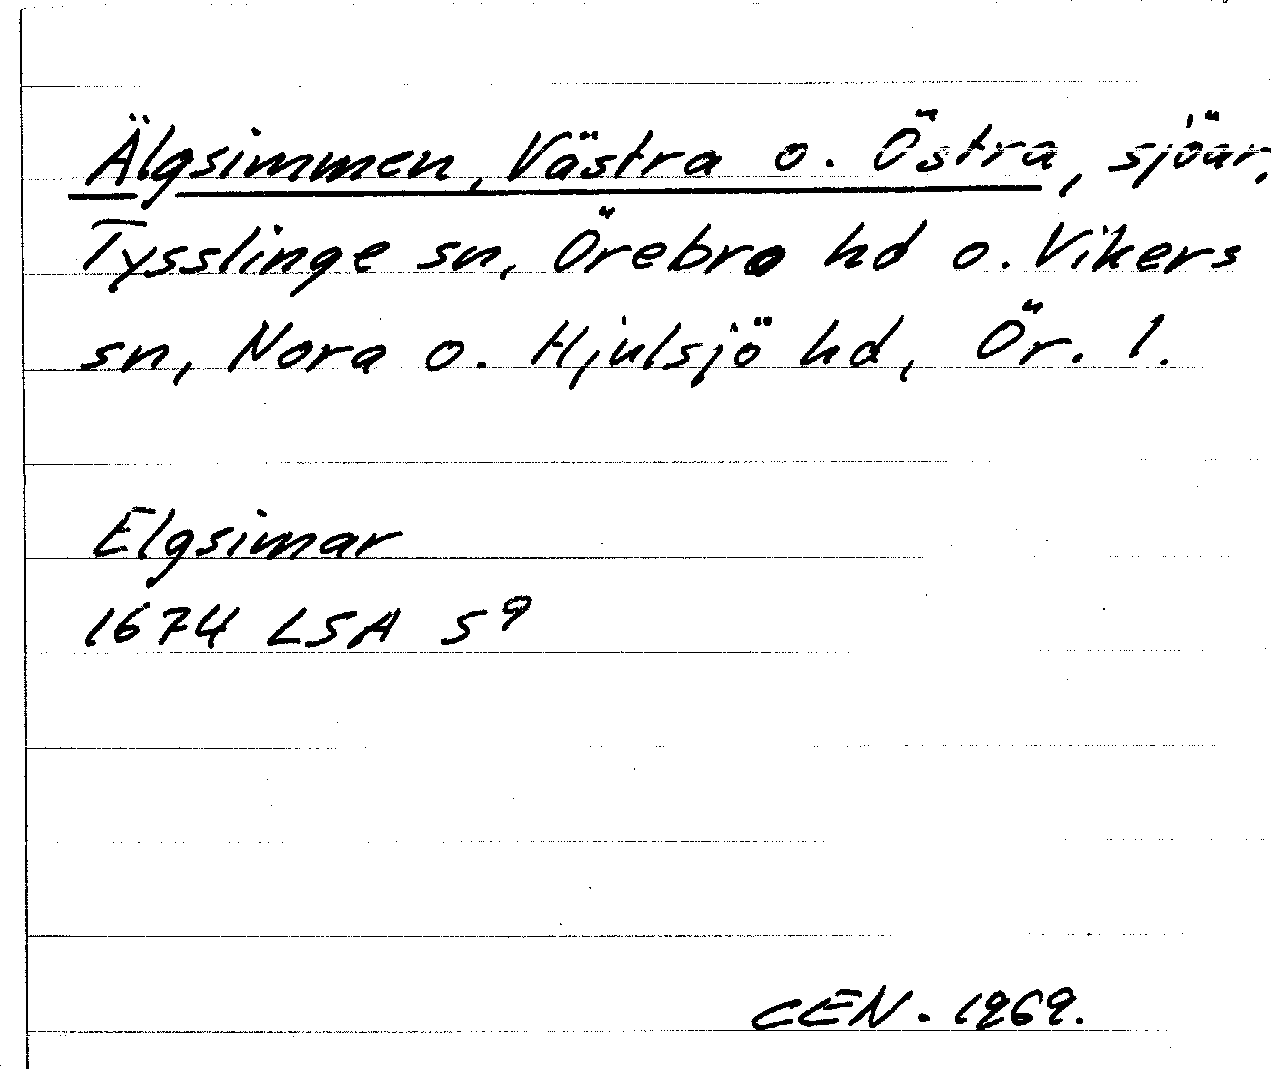 Älgsimmen, Västra o. Östra, sjöar,
Tysslinge sn, Örebro hd o. Vikers
sn, Nora o. Hjulsjö hd, Ör. l.
Elgsimar
1674 LSA S 9
CEN. 1969.